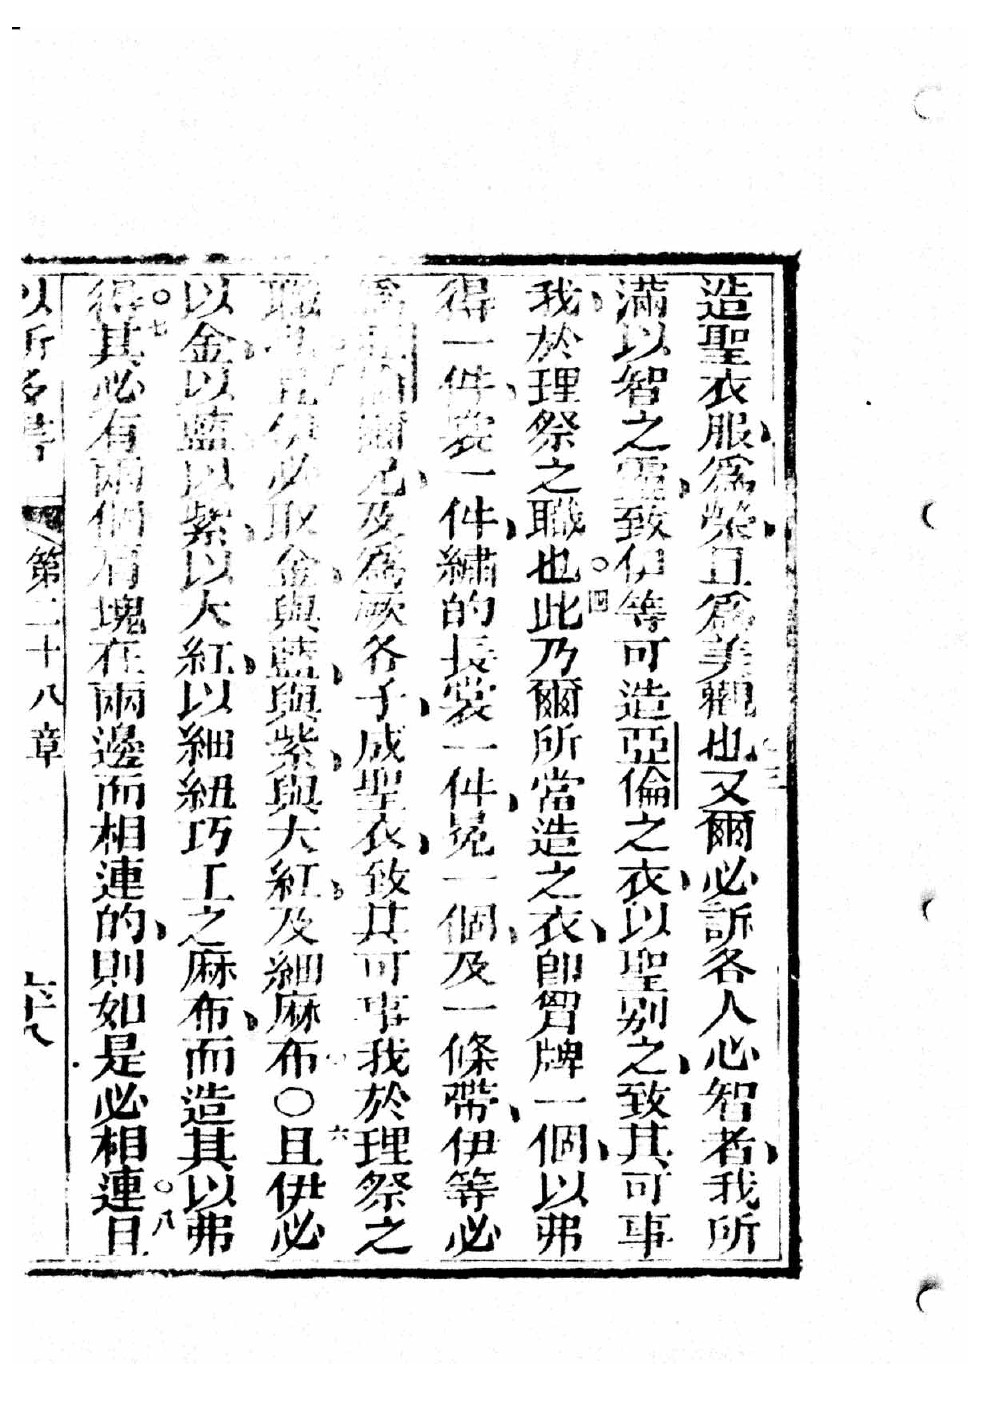 造聖衣服、爲榮、且爲美觀也、三又爾必訴各人心智者、我所
滿以智之靈、致伊等可造亞倫之衣、以聖別之、致其可事
我、於理祭之職也。四此乃爾所當造之衣、卽胷牌一個、以弗
得一件、裳一件、繡的長裳一件、冕一個、及一條帶、伊等必
爲亞倫爾兄、及爲厥各子、成聖衣、致其可事我於理祭之
職也。且伊必取金、與藍、與紫、與大紅、及細麻布〇六且伊必
以金、以藍、以紫、以大紅、以細紐巧工之麻布、而造其以弗
得。七其必有兩個肩塊在兩邊而相連的、則如是必相連。八且
以所多書 第二十八章 六十八